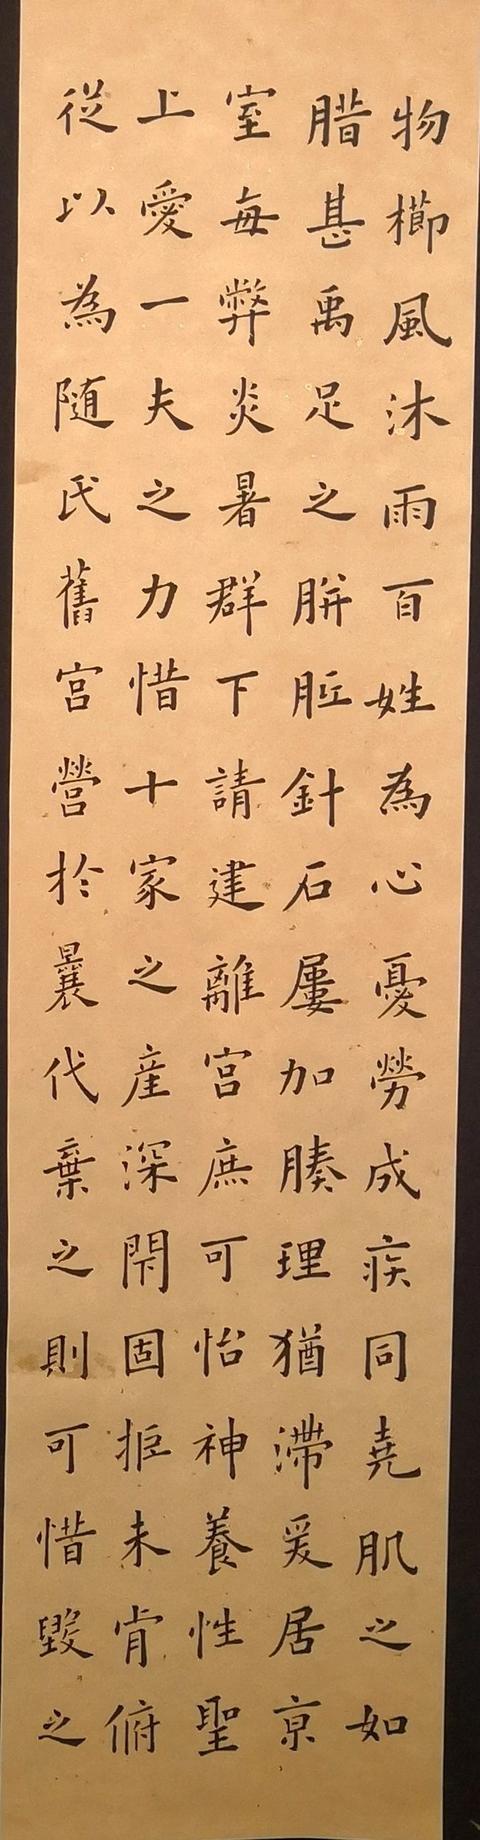 物櫛風沐雨百姓為心憂勞成疾同堯肌之如
腊甚禹足之胼胝針石屢加腠理猶滯爰居京
室每弊炎暑群下請建離宮庶可怡神養性聖
上愛一夫之力惜十家之産深閇固拒未肯俯
從以為随氏舊宮營於曩代棄之則可惜毀之